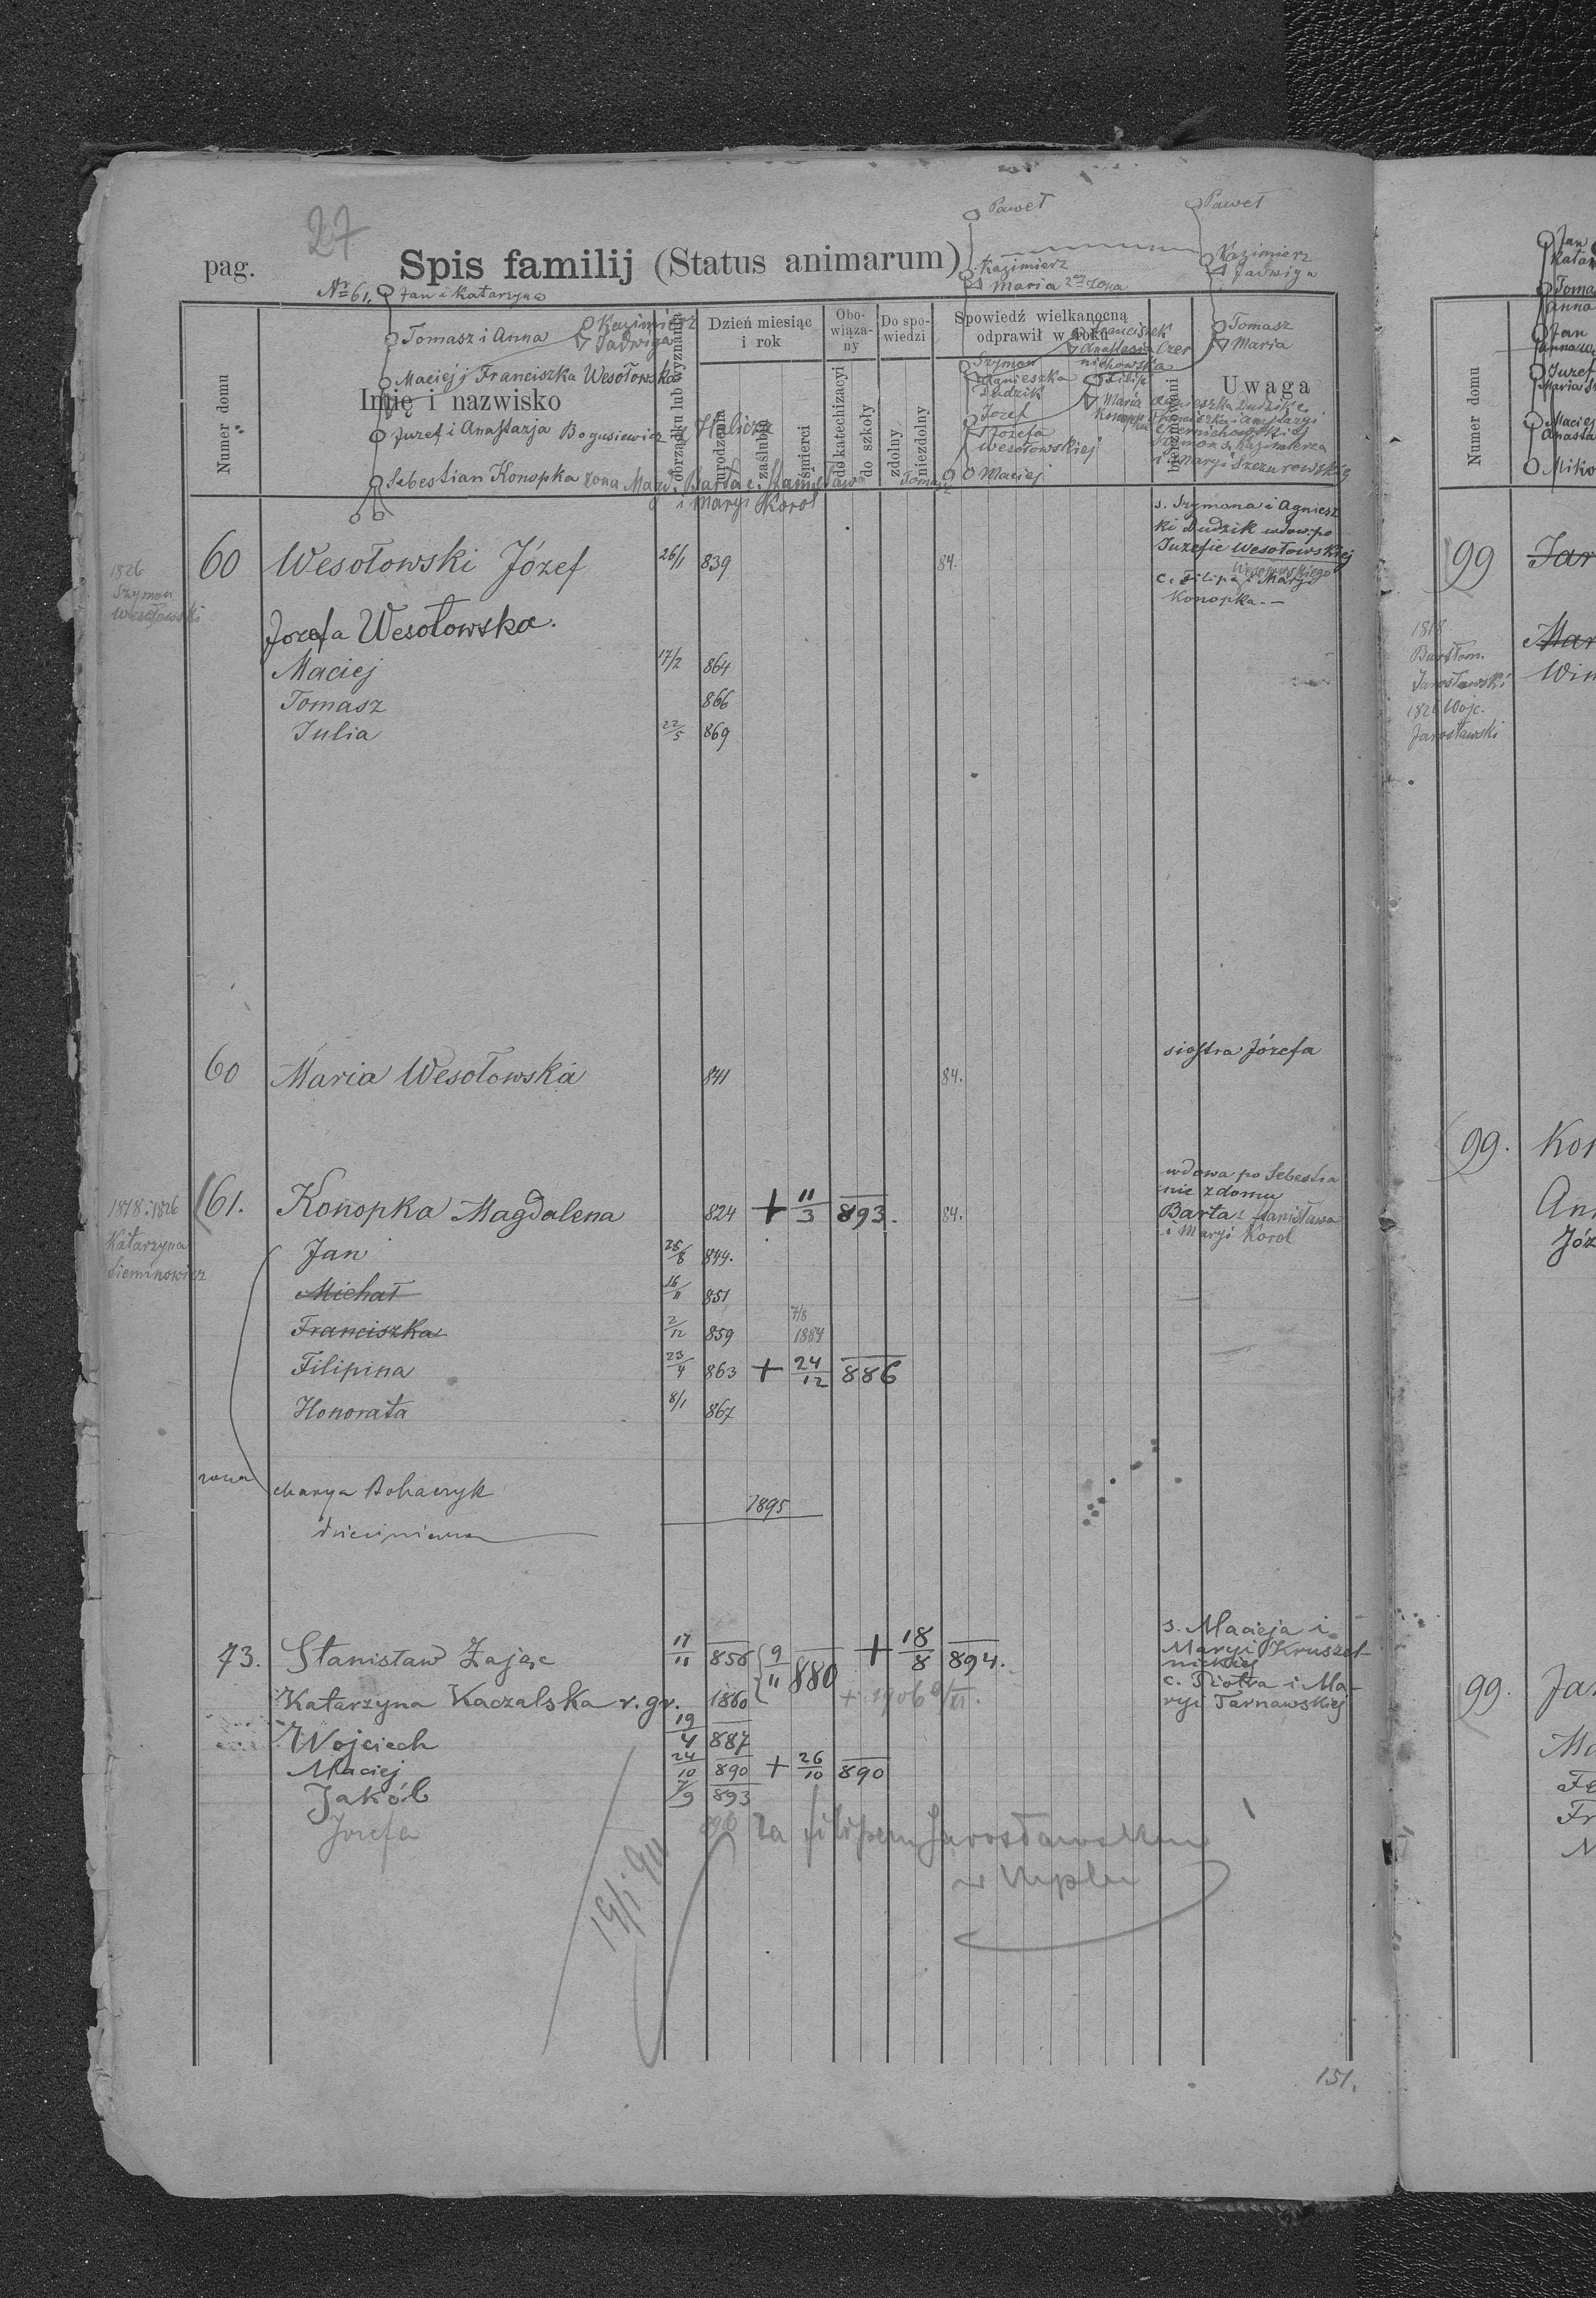 27
Paweł
Paweł
pag.
Spis familij (Status animarum)
Kazimierz
Maria 2ga żona
Kazimierz
Jadwiga
Nr 61.
Jan i Katarzyna
Tomasz i Anna
Kazimierz
Jadwiga
Maciej i Franciszka Wesołowska
Imię i nazwisko
Juzef i Anastazja Bogusiewicz z Halicza
Sebestian Konopka żona Magd. Barta c. Stanisława
i Maryi Korol
Numer domu
obrządku lub wyznania
Dzień miesiąc
i rok
urodzenia
zaślubin
śmierci
Obo-
wiąza-
ny
do katechizacyi
do szkoły
Do spo-
wiedzi
zdolny
niezdolny
Spowiedź wielkanocną
odprawił w roku
Franciszek
Anastasia Czer
nichowska
Szymon
Agnieszka
Dudzik
Filip
Maria
Konopka
Jozef
Jozefa
Wesołowskiej
Tomasz
Maciej
bierzmowani
Tomasz
Maria
Uwaga
Agnieszka Dudzik c.
Franciszka i Anastazyi
Czernichowskiej
Szymon s. Kazimierza
i Maryi Szczurowskiej
s. Szymona i Agniesz
ki Dudzik wdow. po
Juzefie Wesołowskiej
Wesołowskiego
c. Filipa i Maryi
Konopka.—
1826
Szymon
Wesołowski
60 Wesołowski Józef 26/1 839 84.
Jozefa Wesołowska.
Maciej 17/2 864
Tomasz 866
Julia 22/5 869
siostra Józefa
60 Maria Wesołowska 841 84.
wdowa po Sebestia
nie z domu
Barta c. Stanisława
i Maryi Korol
1818:1826
Katarzyna
Sieminowicz
61. Konopka Magdalena 824 + 11/3 893. 84.
Jan 25/8 844.
Michał 16/11 851
Franciszka 2/12 859 7/8 1884
Filipina 23/4 863 + 24/12 886
Honorata 8/1 867
żona Marya Bohaczyk
1895
s. Macieja i
Maryi Kruszel
nickiej
73. Stanisław Zając 17/11 856 9/11 880 + 18/8 894.
c. Piotra i Ma-
ryi Tarnawskiej
Katarzyna Kaczalska r. gr. 1860 + 1906 /XI.
Wojciech 19/4 887
Maciej 24/10 890 + 26/10 890
Jakób 7/9 893
Jozefa za filipem Jarosławskim
151.
Numer domu
Jan
Toma
Anna
Jan
Juzef
Maciej
Anasta
Miko
99 Jar
1818
Bartłom.
Jarosławski
1826 Wojc.
Jarosławski
Mar
Win
99. Kon
An
Józ
99. Jan
Ma
Fr